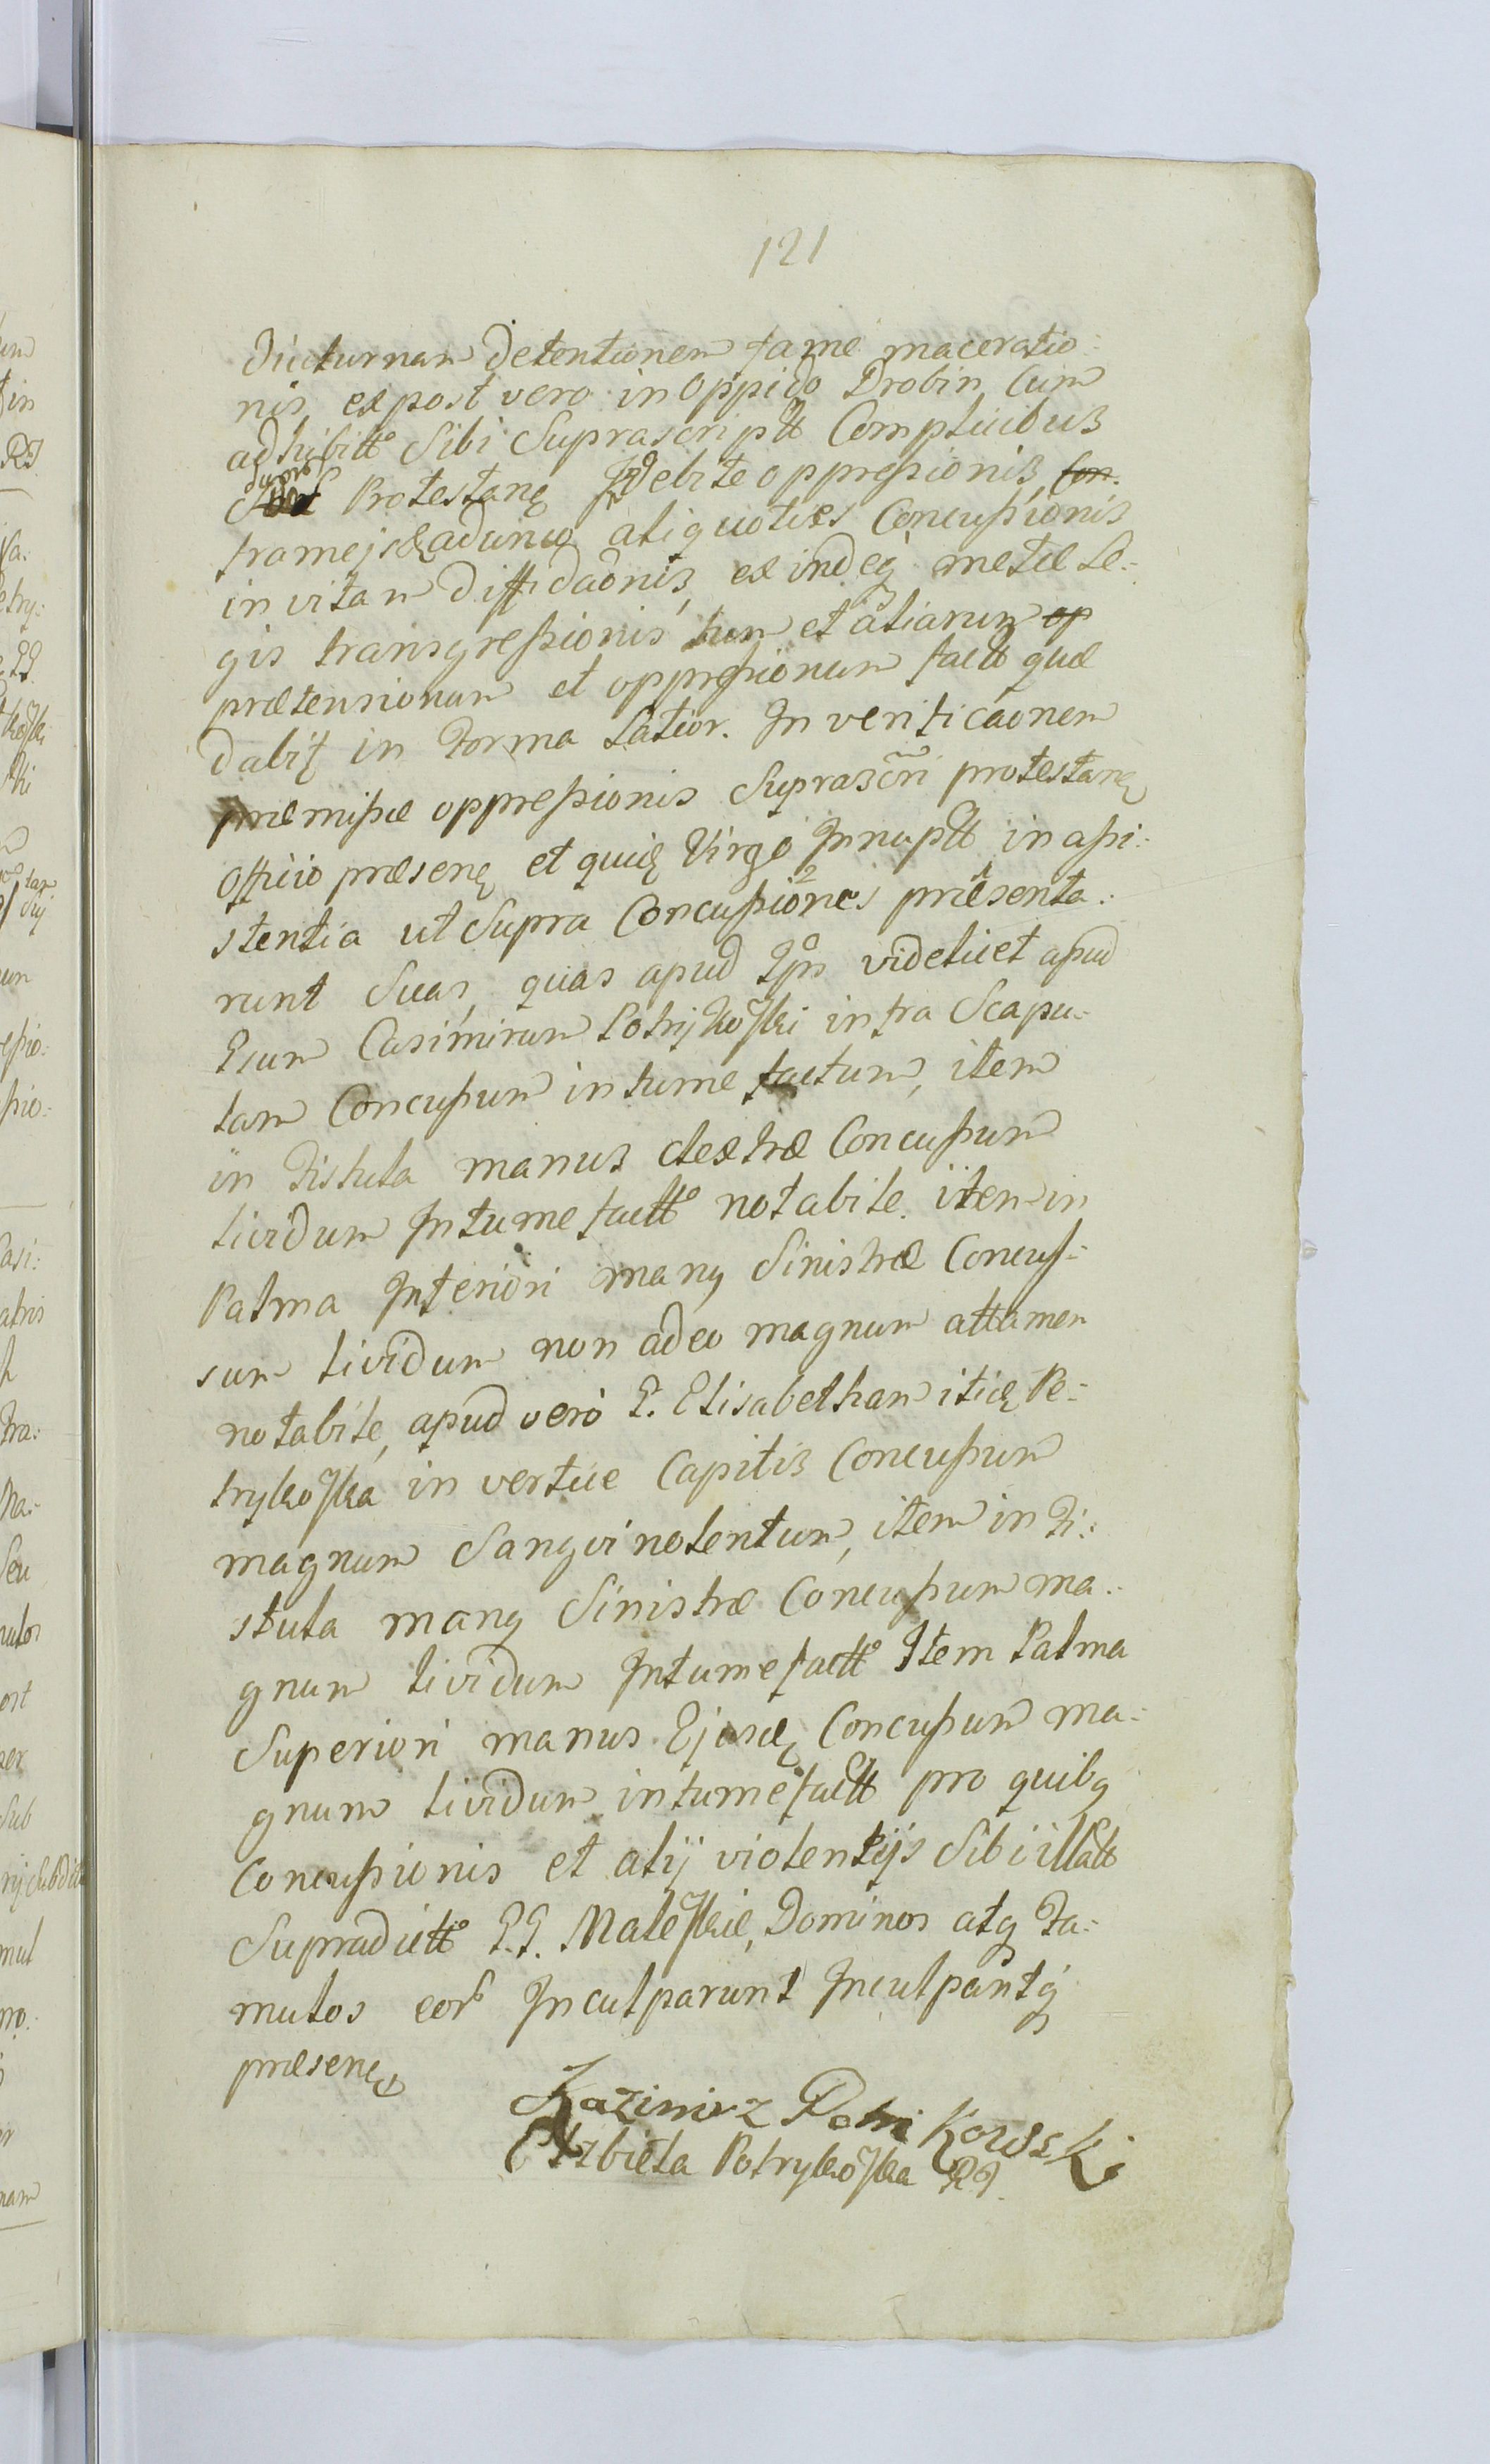 121
diuturnam detentionem fame maceratio:
nis, ex post vero in oppido Drobin cum
adhibitt° Sibi Suprascriptt Complicibus
duor Protestanę Indebite oppressionis,
aliquoties Concussionis
in vitam diffidaõnis, ex indeq metæ Le:
gis transgressionis tum et aliarum op
prætensionum et oppressionum factt quæ
dabit in Forma Latior. In verificaõnem
præmissæ oppressionis Suprascri protestanę
officio præsenę et quidę Virgo Innuptt in assi:
stentia ut Supra Concussiones præsenta:
runt Suas, quas apud videlicet apud
Casimirum Potrykoski intra Scapu:
lam Concussum intumefactum, item
in Fistula manus dextræ Concussum
lividum Intumefactt° notabile. item in
Palma Interiori manę Sinistræ Concus:
sum lividum non adeo magnum attamen
notabile, apud vero G. Elisabetham itidę Po:
trykoska in vertice Capitis Concussum
magnum Sangvinolentum, item in Fi:
stula manę Sinistræ Concussum ma:
gnum lividum Intumefactt° Item Palma
Superiori manus Ejusdę Concussum ma:
gnum lividum intumefactt pro quibę
Concussionis et alÿ violentÿs Sibi illatt
Supradictt° G.G. Maleskie, Dominos atq Fa:
mulos eor Inculparunt Inculpantq
præsenę
Kazimirz Potrikowski
Elzbieta Potrykoska